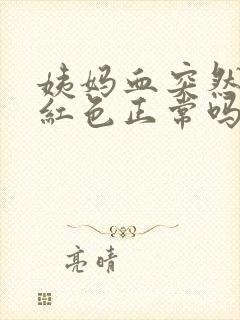 姨妈血突然
红色正常吗
亮晴